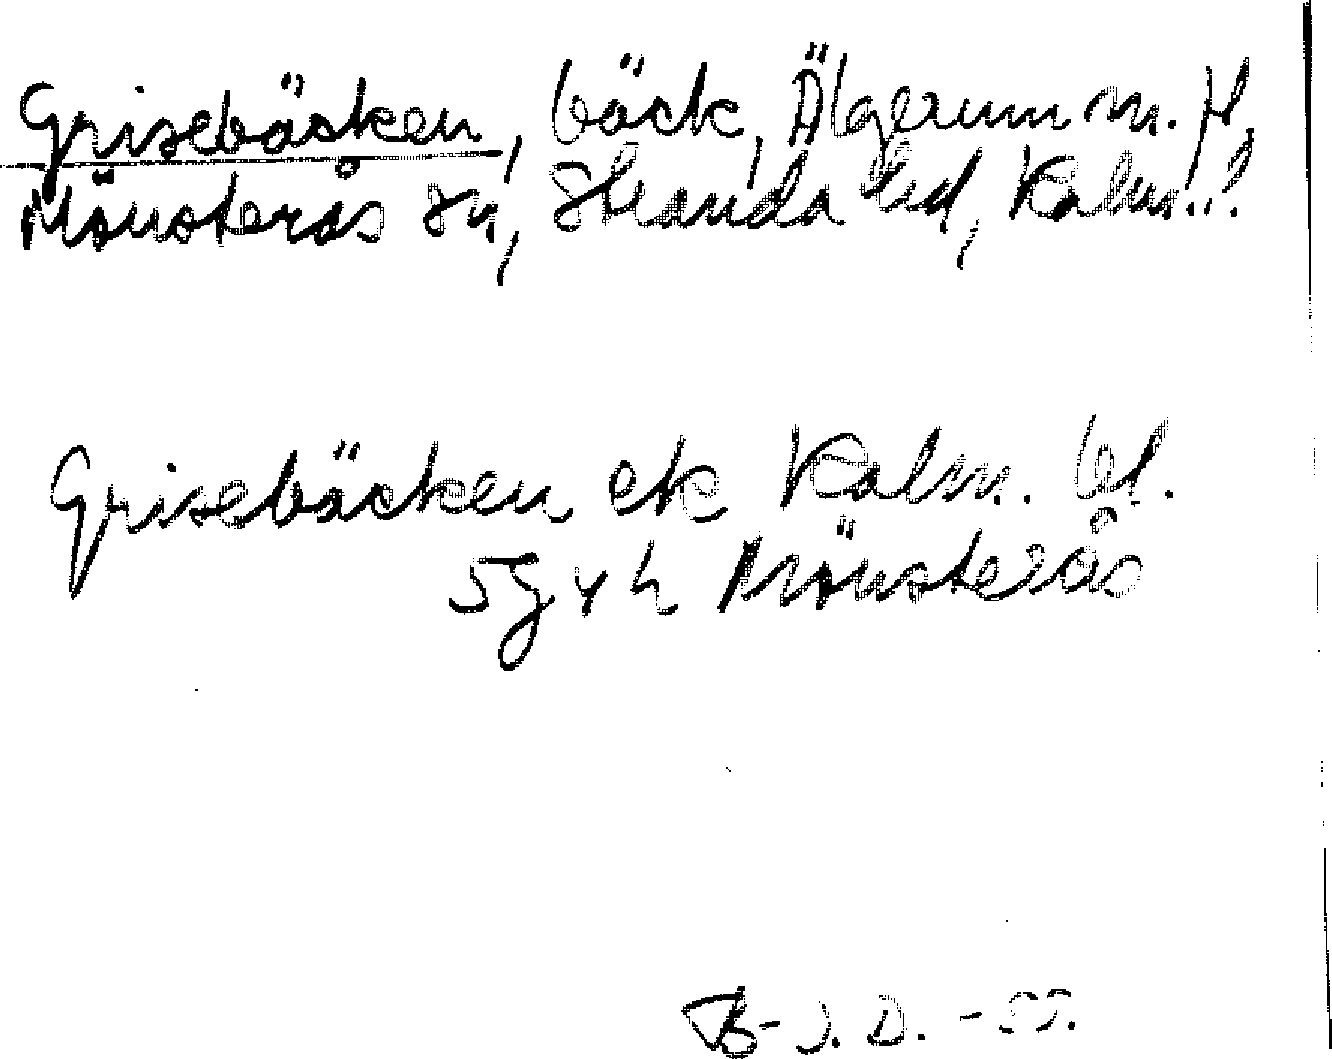 Grisebäcken, bäck, Älgerum m. fl.,
Mönsterås sn, Stranda hd, Kalm. l.
Grisebäcken ek Kalm. bl.
5g 4h Mönsterås
B-J. D. -55.